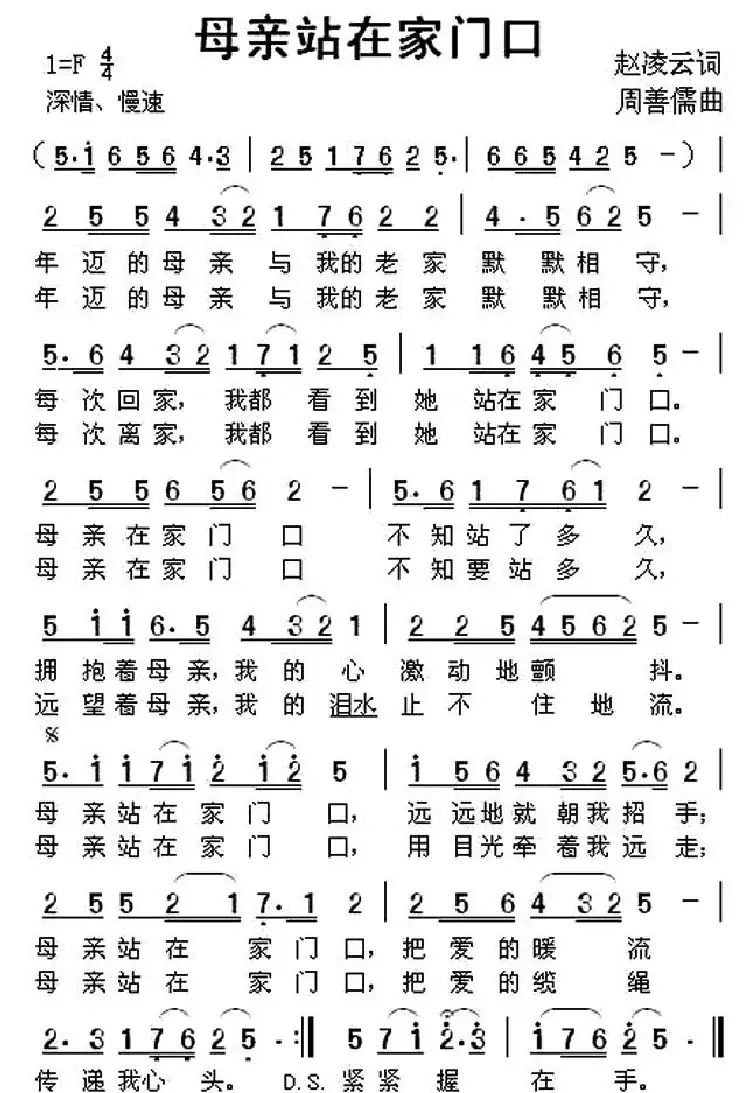 母亲站在家门口
1=F 4/4
赵凌云词
深情、慢速
周善儒曲
(5·i 656 4·3 | 25 176 2 5· | 665 425 - ) |
2 55 4 32 1 76 2 2 | 4·5 62 5 - |
年迈的母亲与我的老家默默相守,
年迈的母亲与我的老家默默相守,
5·6 4 32 171 2 5 | 1 16 45 6 5 - |
每次回家,我都看到她站在家门口。
每次离家,我都看到她站在家门口。
2 55 6 56 2 - | 5·6 17 61 2 - |
母亲在家门口不知站了多久,
母亲在家门口不知要站多久,
5 ii 6·5 4 32 1 | 2 25 4562 5 - |
拥抱着母亲,我的心激动地颤抖。
远望着母亲,我的泪水止不住地流。
5·i i7i 2 i2 5 | i 56 4 32 5·6 2 |
母亲站在家门口,远远地就朝我招手;
母亲站在家门口,用目光牵着我远走;
2 55 2 1 7·1 2 | 2 56 4 32 5 - |
母亲站在家门口,把爱的暖流
母亲站在家门口,把爱的缆绳
2·3 176 2 5 · :‖ 5 7i 2·3 | i76 5 5 - ‖
传递我心头。D.S.紧紧握在手。